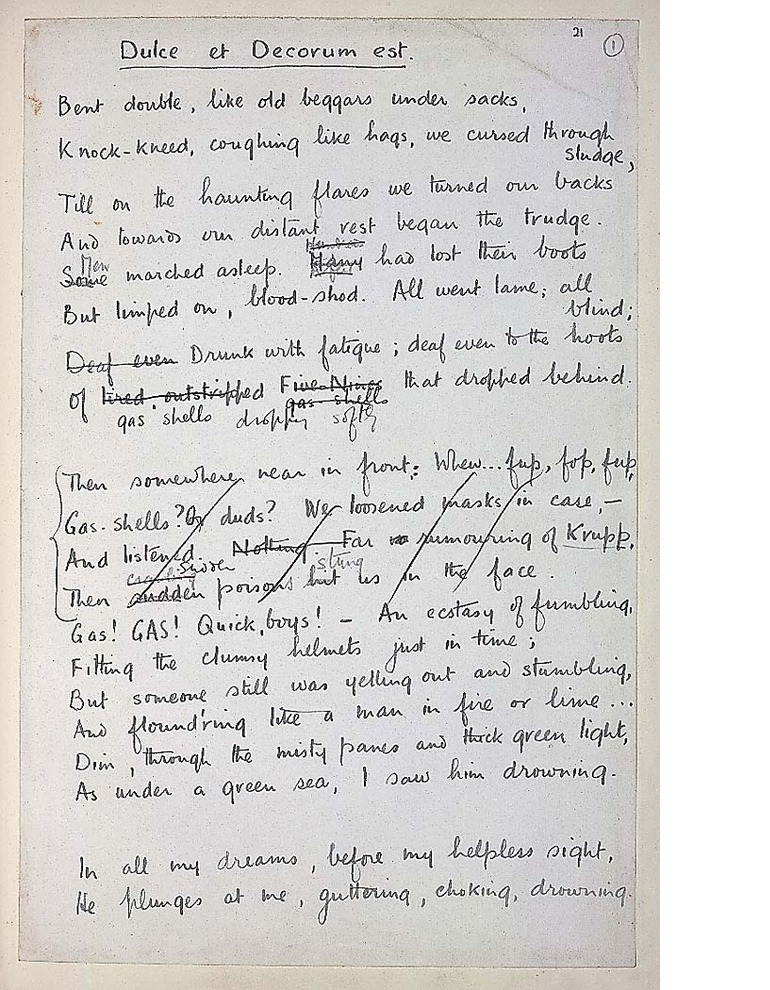 21
1
Dulce et Decorum est.
Bent double, like old beggars under sacks,
Knock-kneed, coughing like hags, we cursed through
sludge,
Till on the haunting flares we turned our backs
And towards our distant rest began the trudge.
Men
Some marched asleep. Many had lost their boots
But limped on, blood-shod. All went lame; all
blind;
Deaf even Drunk with fatigue; deaf even to the hoots
of tired, outstripped Five-Nines that dropped behind.
gas-shells
gas shells dropping softly
Then somewhere near in front: Whew... fup, fop, fup,
Gas-shells? Or duds? We loosened masks in case,—
And listened. Nothing. Far rumouring of Krupp,
stung
Then sudden poisons hit us in the face.
Gas! GAS! Quick, boys! — An ecstasy of fumbling,
Fitting the clumsy helmets just in time;
But someone still was yelling out and stumbling,
And flound'ring like a man in fire or lime...
Dim, through the misty panes and thick green light,
As under a green sea, I saw him drowning.
In all my dreams, before my helpless sight,
He plunges at me, guttering, choking, drowning.